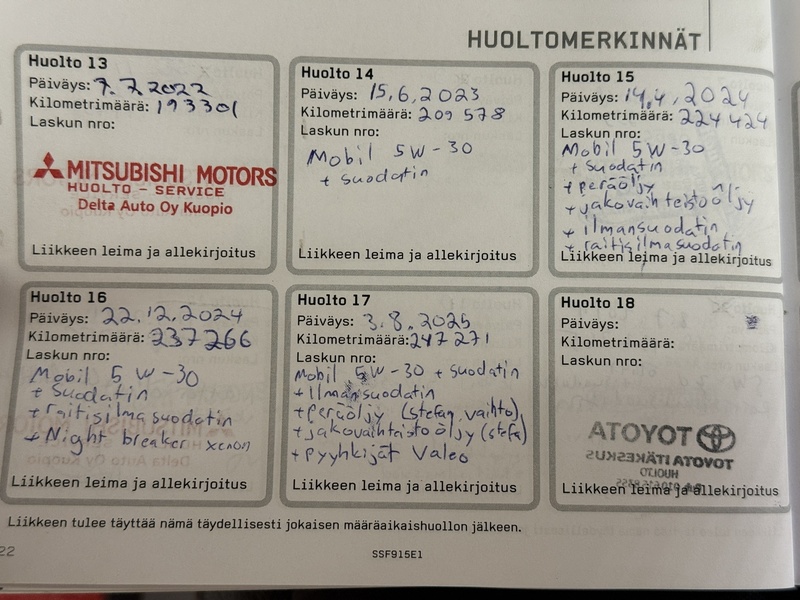 HUOLTOMERKINNÄT
Huolto 13
Päiväys: 7.7.2022
Kilometrimäärä: 193301
Laskun nro:
MITSUBISHI MOTORS
HUOLTO - SERVICE
Delta Auto Oy Kuopio
Liikkeen leima ja allekirjoitus
Huolto 14
Päiväys: 15.6.2023
Kilometrimäärä: 209 578
Laskun nro:
Mobil 5W-30
+ suodatin
Liikkeen leima ja allekirjoitus
Huolto 15
Päiväys: 14.4.2024
Kilometrimäärä: 224 424
Laskun nro:
Mobil 5W-30
+ suodatin
+ peräöljy
+ jakovaihteistoöljy
+ ilmansuodatin
+ raitisilmasuodatin
Liikkeen leima ja allekirjoitus
Huolto 16
Päiväys: 22.12.2024
Kilometrimäärä: 237266
Laskun nro:
Mobil 5W-30
+ suodatin
+ raitisilmasuodatin
+ Night breaker xenon
Liikkeen leima ja allekirjoitus
Huolto 17
Päiväys: 3.8.2025
Kilometrimäärä: 247271
Laskun nro:
Mobil 5W-30 + suodatin
+ Ilmansuodatin
+ peräöljy (stefan vaihto)
+ jakovaihteistoöljy (stefa)
+ pyyhkijät Valeo
Liikkeen leima ja allekirjoitus
Huolto 18
Päiväys:
Kilometrimäärä:
Laskun nro:
TOYOTA
TOYOTA ITÄKESKUS
HUOLTO
Liikkeen leima ja allekirjoitus
Liikkeen tulee täyttää nämä täydellisesti jokaisen määräaikaishuollon jälkeen.
22
SSF915E1